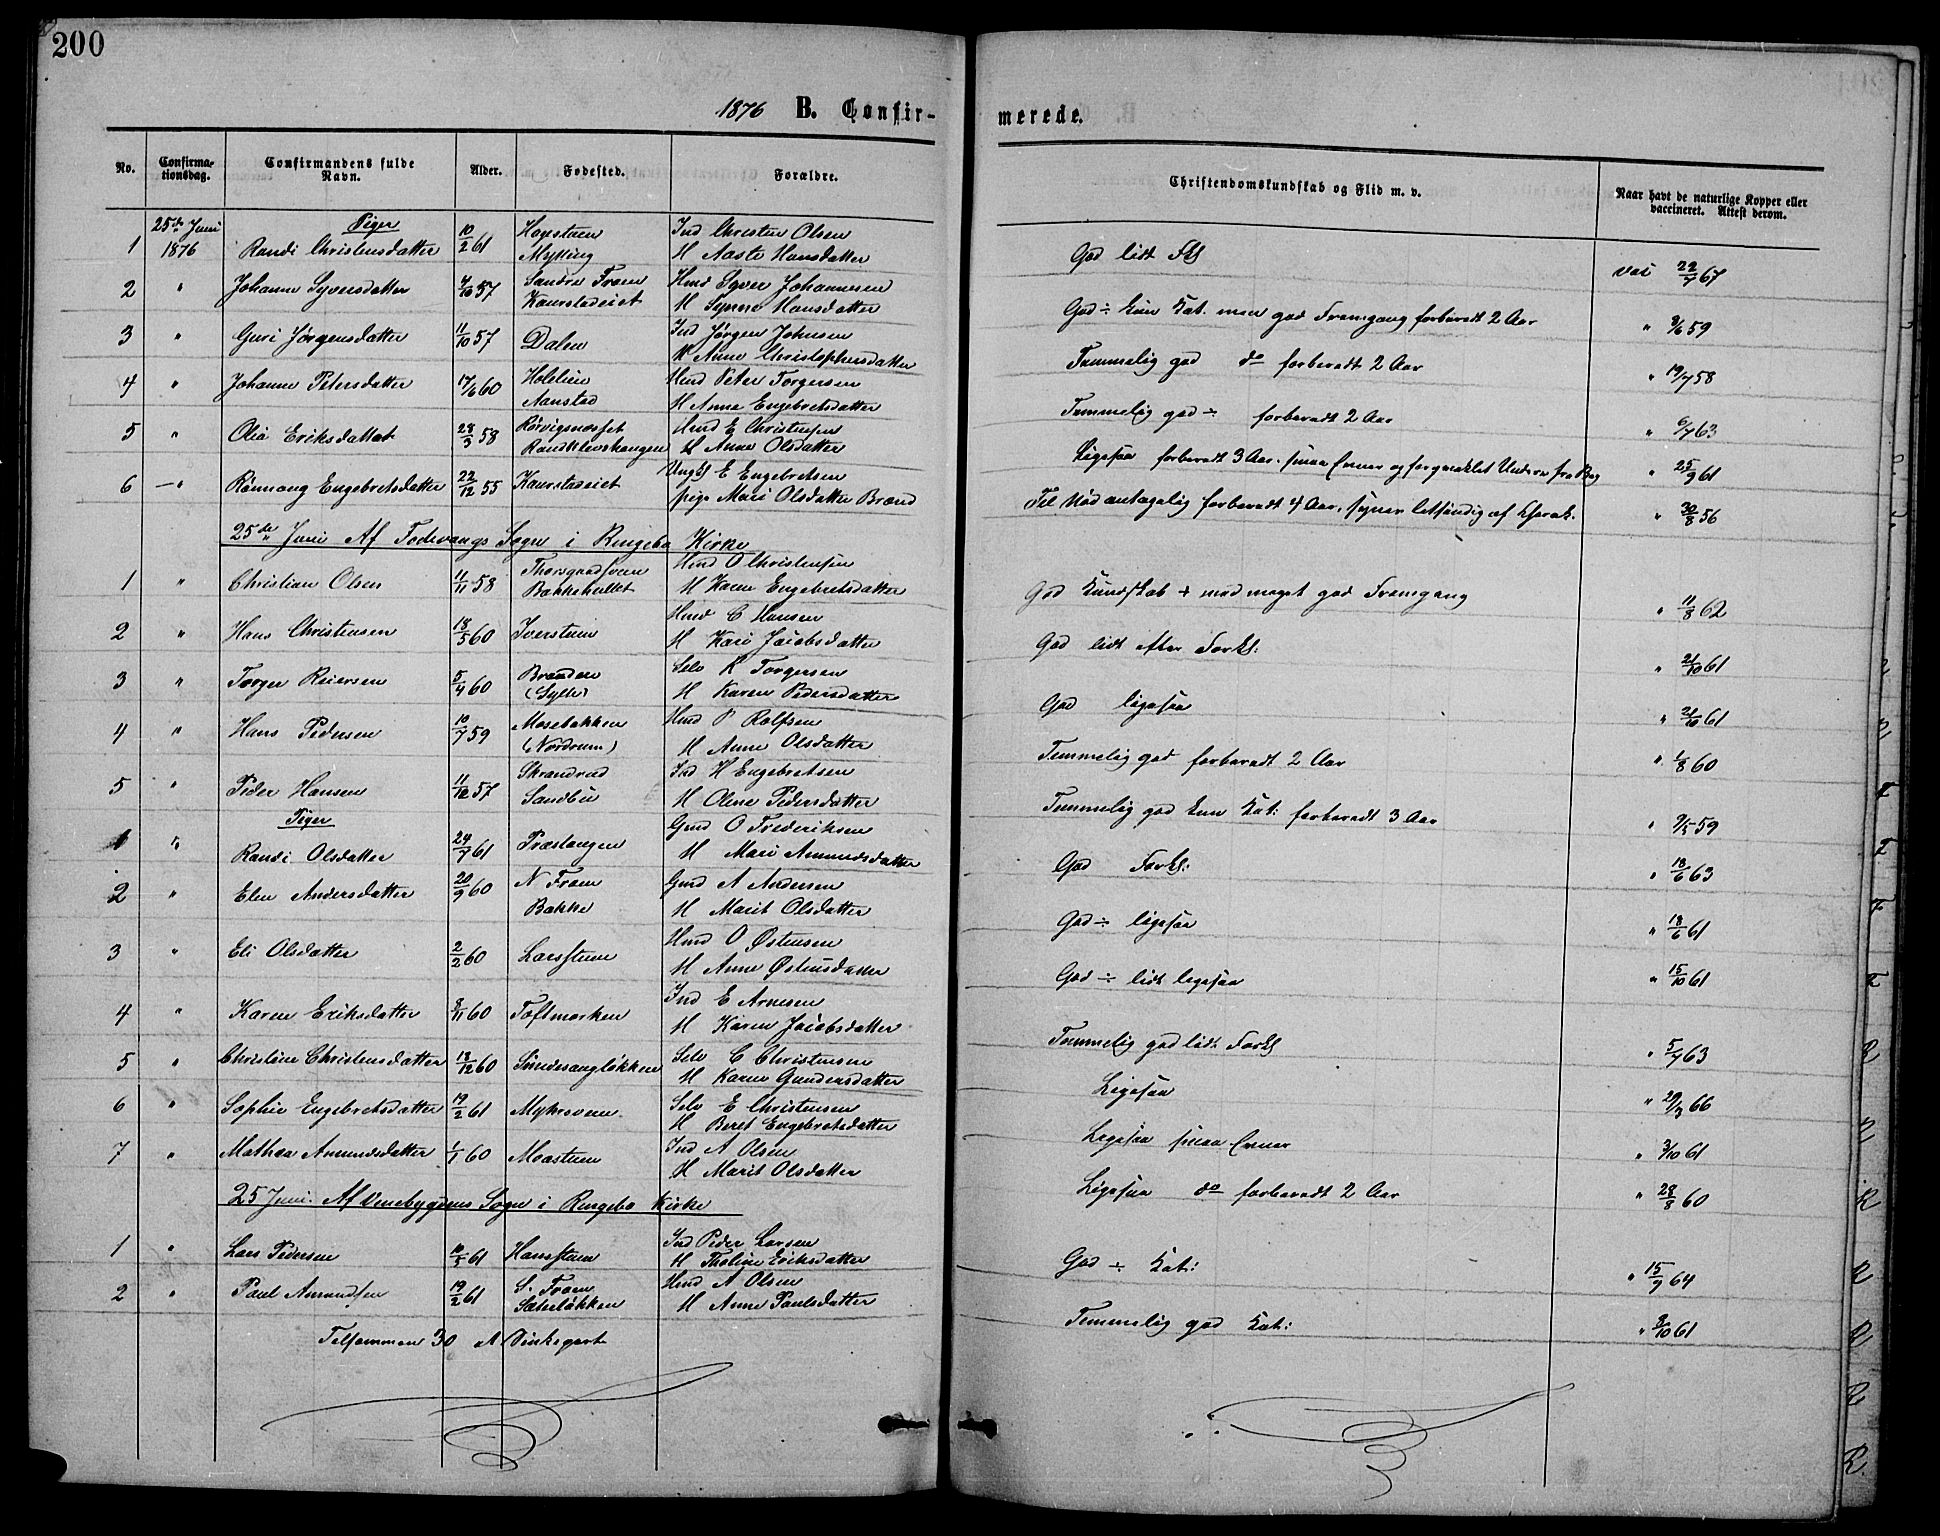 200
1876 B. Confir-
merede.
No.
Confirma-
tionsdag.
Confirmandens fulde
Navn.
Alder.
Fødested.
Forældre.
Christendomskundskab og Flid m. v.
Naar havt de naturlige Kopper eller
vaccineret. Attest derom.
25de Juni Piger
1 1876 Randi Christensdatter 10/2 61 Mytting Ind Christen Olsen
H Aaste Hansdatter God lidt vac 22/7 67
2 " Johanne Syversdatter 4/10 57 Søndre Froen Hmd Syver Johannesen
Kaurstadeiet H Synne Hansdatter God ÷ kun Kat. men god Fremgang forberedt 2 Aar " 9/6 59
3 " Guri Jørgensdatter 11/10 57 Dalen Ind Jørgen Johnsen
H Anne Christophersdatter Temmelig god do forberedt 2 Aar " 19/7 58
4 " Johanne Petersdatter 17/6 60 Holelien Hmd Peter Torgersen
Aanstad H Anne Engebretsdatter Temmelig god ÷ forberedt 2 Aar " 6/7 63
5 " Olia Eriksdatter 28/3 58 Hmd E Christensen
Randklevshaugen H Anne Olsdatter Ligesaa forberedt 3 Aar. smaa Evner og " 25/9 61
6 " Rønnaug Engebretsdatter 22/12 55 Kaurstadeiet Ungk E Engebretsen
pige Mari Olsdatter Brænd Til Nød antagelig forberedt 4 Aar, synes letsindig af Charak. " 30/8 56
25de Juni Af Fodevangs Sogn i Ringebo Kirke
1 " Christian Olsen 11/11 58 Thorsgaardsveen Hmd O Christensen
Bakkehullet H Karen Engebretsdatter God Kundskab + med meget god Fremgang " 11/8 62
2 " Hans Christensen 18/5 60 Iverstuen Hmd C Hansen
H Kari Jacobsdatter God lidt efter Forkl: " 21/10 61
3 " Torger Reiersen 5/4 60 Brænden Selv R Torgersen
(Sylte) H Karen Pedersdatter God ligesaa " 21/10 61
4 " Hans Pedersen 10/7 59 Mosebakken Hmd P Rolfsen
(Nordrum) H Anne Olsdatter Temmelig god forberedt 2 Aar " 1/8 60
5 " Peder Hansen 11/12 57 Strandrud Ind H Engebretsen
Sandbu H Olene Pedersdatter Temmelig god kun Kat: forberedt 3 Aar " 9/5 59
Piger
1 " Randi Olsdatter 24/7 61 Præstangen Gmd O Frederiksen
H Mari Amundsdatter God Forkl: " 18/6 63
2 " Elen Andersdatter 20/9 60 N Froen Gmd A Andersen
Bakke H Marit Olsdatter God ÷ ligesaa " 18/6 61
3 " Eli Olsdatter 2/2 60 Larsstuen Hmd O Østensen
H Anne Østensdatter God ÷ lidt ligesaa " 15/10 61
4 " Karen Eriksdatter 8/11 60 Toftmarken Ind E Arnesen
H Karen Jacobsdatter Temmelig god lidt Forkl " 5/7 63
5 " Christine Christensdatter 18/12 60 Selv C Christensen
H Karen Gundersdatter Ligesaa " 29/3 66
6 " Sophie Engebretsdatter 19/2 61 Myhrsveen Selv E Christensen
H Beret Engebretsdatter Ligesaa smaa Evner " 3/10 61
7 " Mathea Amundsdatter 1/1 60 Moastuen Ind A Olsen
H Marit Olsdatter Ligesaa do forberedt 2 Aar " 28/8 60
25 Juni. Af Venebygdens Sogn i Ringebo Kirke
1 " Lars Pedersen 10/5 61 Hansstuen Ind Peder Larsen
H Tholine Eriksdatter God ÷ Kat: " 15/9 64
2 " Paul Amundsen 19/2 61 S. Froen Hmd A Olsen
Sæterløkken H Anne Paulsdatter Temmelig god Kat: " 8/10 61
Tilsammen 30